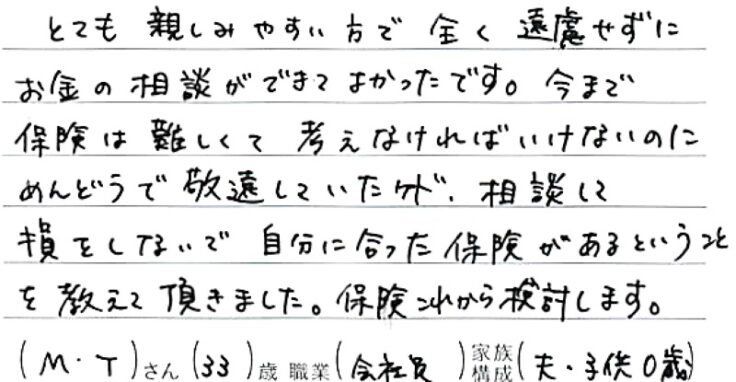 とても 親しみやすい方で 全く 遠慮せずに
お金の相談ができてよかったです。今まで
保険は難しくて 考えなければいけないのに
めんどうで敬遠していたけど、相談して
損をしないで 自分に合った保険があるということ
を教えて頂きました。保険これから検討します。
(M・T)さん(33)歳 職業(会社員)家族構成(夫・子供0歳)